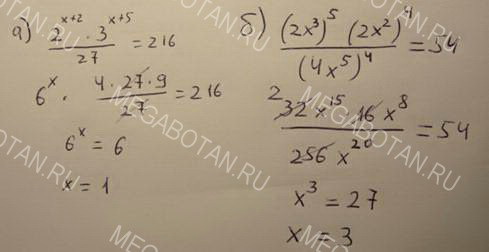 а) 2^{x+2} · 3^{x+5} / 27 = 216
6^x · 4 · 27 · 9 / 27 = 216
6^x = 6
x = 1
б) (2x^3)^5 (2x^2)^4 / (4x^5)^4 = 54
2 32 x^15 16 x^8 / 256 x^20 = 54
x^3 = 27
x = 3
MEGABOTAN.RU
MEGABOTAN.RU
MEGABOTAN.RU
MEGABOTAN.RU